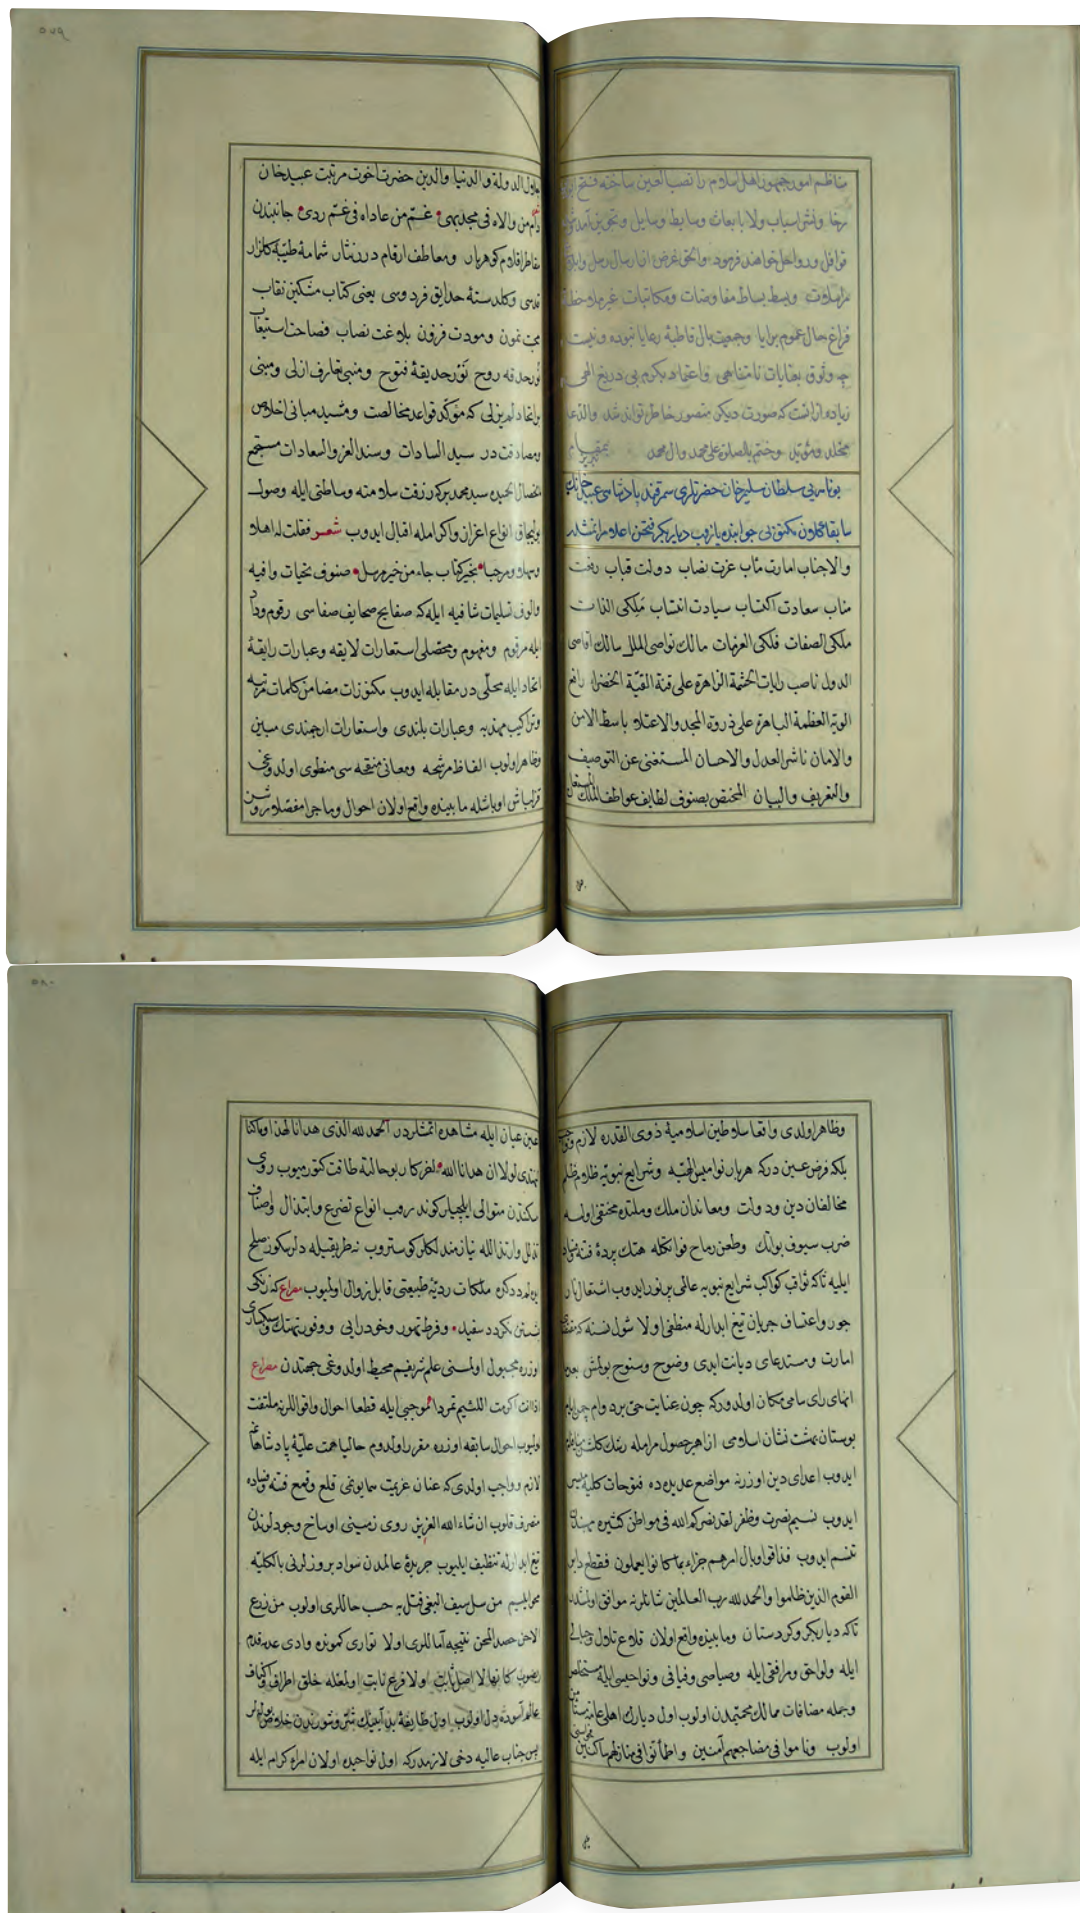 ۵۷۹
مناظم امور جمهور اهل اسلام را نصب العین ساخته فتح
رخا و نشر اسباب ولا بابعاث وسایط وسایل و تجویز آمد شد
قوافل و رواحل خواهند فرمود و الحق غرض از ارسال رسل و ابلاغ
مراسلات و بسط بساط مفاوضات و مکاتبات غیر ملاحظه
فراغ حال عموم برایا و جمعیت بال قاطبهٔ رعایا نبوده و نیست
چه وثوق بعنایات نامتناهی و اعتماد بکرم بی دریغ الهی
زیاده از آنست که صورت دیگر متصور خاطر تواند شد والدعا
مخلد و مؤید و ختم بالصلوة علی محمد وال محمد
سلطان سلیم خان حضرتلری سمرقند پادشاهی عبید خانك
سابقا کلون مکتوبی جوابنده یازوب دیار بکر فتحن اعلام اتمشلدر
والاجناب امارت مآب عزت نصاب دولت قباب رفعت
مئاب سعادت اکتساب سیادت انتساب ملکی الذات
ملکی الصفات فلکی العزمات مالك نواصی الملل سالك اقاصی
الدول ناصب رایات الحشمة الزاهرة علی قنة القبة الخضراء رافع
الویة العظمة الباهرة علی ذروة المجد والاعتلاء باسط الامن
والامان ناشر العدل والاحسان المستغنی عن التوصیف
والتعریف والبیان المختص بصنوف لطایف عواطف الملك المستعان
الدولة والدنیا والدین حضرت اخوت مرتبت عبید خان
من والاه فی مجد بهی غم من عاداه فی غم ردی جانبندن
مقاطر اقلام کوهربار ومعاطف ارقام درر نثار شمامهٔ طیبهٔ کلزار
قدسی وکلدستهٔ حدایق فردوسی یعنی کتاب مشکین نقاب
محبت نمون ومودت فزون بلاغت نصاب فصاحت استیعاب
نور حدقه روح نور حدیقهٔ فتوح ومنبی تعارف ازلی ومبنی
لم یزلی که مؤکد قواعد مخالصت ومشید مبانی اخلاص
ومصادقت در سید السادات وسند العز والسعادات مستجمع
خصال الحمیده سید محمد برکه رزقت سلامته وساطتی ایله وصول
بولیجاق انواع اعزاز واکرامله اقبال ایدوب شعر فقلت له اهلا
وسهلا ومرحبا بخیر کتاب جاء من خیر مرسل صنوف تحیات وافیه
والوف تسلیمات شافیه ایله که صفایح صحایف صفاسی رقوم وداد
ایله مرقوم ومفهوم ومحصلی استعارات لایقه وعبارات رایقهٔ
اتحاد ایله محلی در مقابله ایدوب مکنوزات مضامن کلمات مرتبه
وتراکیب مهذبه وعبارات بلندی واستعارات ارجمندی مباین
وظاهر اولوب الفاظ مرشحه ومعانی منقحه سی منطوی اولدوغی
قزلباش اوباشله مابینده واقع اولان احوال وماجرا مفصلا روشن
۵۸۰
وظاهر اولدی واقعا سلاطین اسلامیهٔ ذوی القدره لازم
بلکه فرض عین درکه هر بار نوامیس الهیه وشرایع نبویه ظلام ظلم
مخالفان دین ودولت ومعاندان ملك وملتده مختفی اوله
ضرب سیوف بوانك وطعن رماح فوانکله هتك پردهٔ فتنه
ایلیه تاکه ثواقب کواکب شرایع نبویه عالمی پر نور ایدوب اشتعال نار
جور واعتساف جریان تیغ ابدارله منطفی اولا شول فسنه که
امارت ومستدعای دیانت ایدی وضوح وسنوح بولمش بعد
انهای رای سامی مکان اولدورکه چون عنایت حق برد وام
بوستان بهشت نشان اسلامی ازاهر حصول مرامله رشك کلشن
ایدوب اعدای دین اوزرنه مواضع عدیده ده فتوحات کلیه میسر
ایدوب نسیم نصرت وظفر لقد نصرکم الله فی مواطن کثیره
تنسم ایدوب فذاقوا وبال امرهم جزاء بما کانوا یعملون فقطع دابر
القوم الذین ظلموا والحمد لله رب العالمین شانلرنه موافق اولشدر
تاکه دیار بکر وکردستان ومابینده واقع اولان قلاع تلال وجبالی
ایله ولواحق ومرافقی ایله وصیاصی وفیافی ونواحیسی ایله مستخلص
وجمله مضافات ممالك محمیه‌مدن اولوب اول دیارك اهلی
اولوب وناموا فی مضاجعهم آمنین واطمأنوا فی منازلهم ساکنین
عین عیان ایله مشاهده اتمشلردر الحمد لله الذی هدانا لهذا وما کنا
لنهتدی لولا ان هدانا الله بو حالته طاقت کتورمیوب روی
متوالی ایلچیلر کوندروب انواع تضرع وابتذال واصناف
تذلل وارتذالله نیازمند لکلر کوستروب نه طریقیله دلرسکوز صلح
ملکات ردیهٔ طبیعتی قابل زوال اولمیوب مصراع که زنکی
بشستن نکردد سفید وفرط تهور وخود رایی ووفور تهتك
وزره مجبول اولمسنی علم شریفم محیط اولدوغی جهتدن مصراع
اذا انت اکرمت اللئیم تمردا موجبی ایله قطعا احوال واقوالرنه ملتفت
اولمیوب احوال سابقه اوزره مقرر اولدوم حالیا همت علیهٔ پادشاهانه
لازم وواجب اولدی که عنان عزیمت سمایونمی قلع وقمع فتنه وفساده
مصرف قلوب ان شاء الله العزیز روی زمینی اوساخ وجودلرندن
تیغ ابدارله تنظیف ایلیوب جریدهٔ عالمدن سواد بروزلرنی بالکلیه
محو ایلیم من سل سیف البغی قتل به حسب حاللری اولوب من زرع
الاحن حصد المحن نتیجه آماللری اولا تواری کمونده وادی عدمه قدم
کانها لا اصل ثابت اولا فرع نابت اولمغله خلق اطراف واکناف
عالم آسوده دل اولوب اول طایفهٔ بد آیینك شر وشورندن خلاص بولدیلر
پس جناب عالیه دخی لازمدرکه اول نواحیده اولان امراء کرام ایله